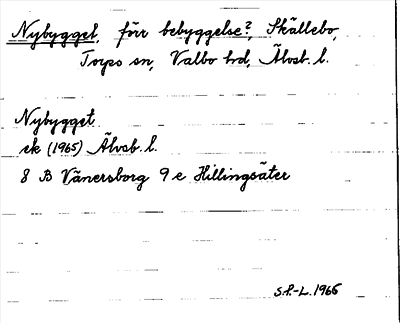 Nybygget, förr bebyggelse?, Skällebo,
Torps sn, Valbo hd, Älvsb. l.
Nybygget
ek (1965) Älvsb. l.
8 B Vänersborg 9 e Hillingsäter
S.P.-L. 1966